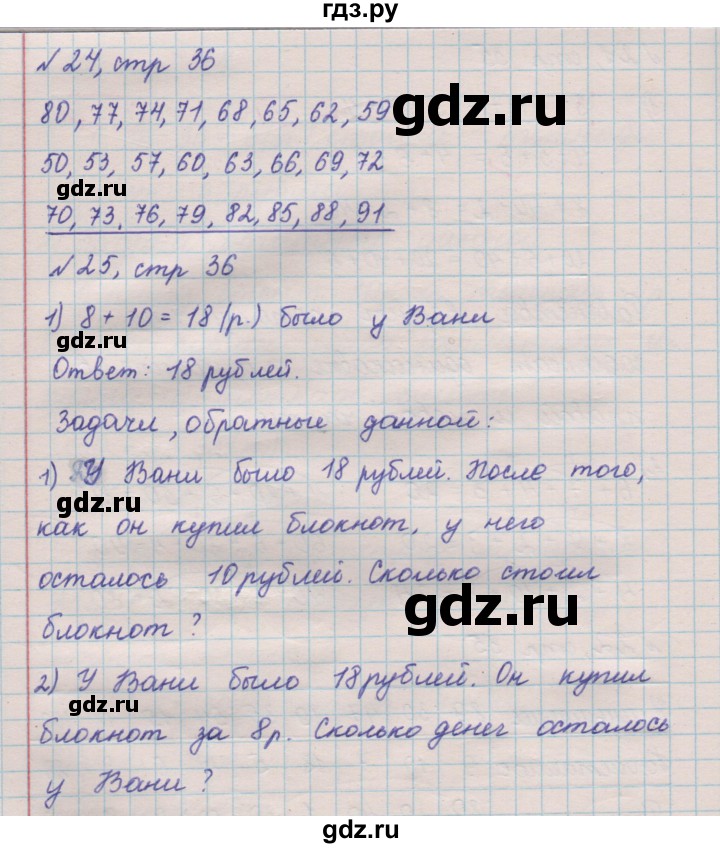 гдз.ру
№24, стр 36
80, 77, 74, 71, 68, 65, 62, 59
gdz.ru
50, 53, 57, 60, 63, 66, 69, 72
gdz.ru
70, 73, 76, 79, 82, 85, 88, 91
№25, стр 36
1) 8 + 10 = 18 (р.) было у Вани
gdz.ru
Ответ: 18 рублей.
Задачи, обратные данной:
1) У Вани было 18 рублей. После того,
gdz.ru
как он купил блокнот, у него
осталось 10 рублей. Сколько стоил
gdz.ru
блокнот?
2) У Вани было 18 рублей. Он купил
gdz.ru
блокнот за 8р. Сколько денег осталось
у Вани?
gdz.ru